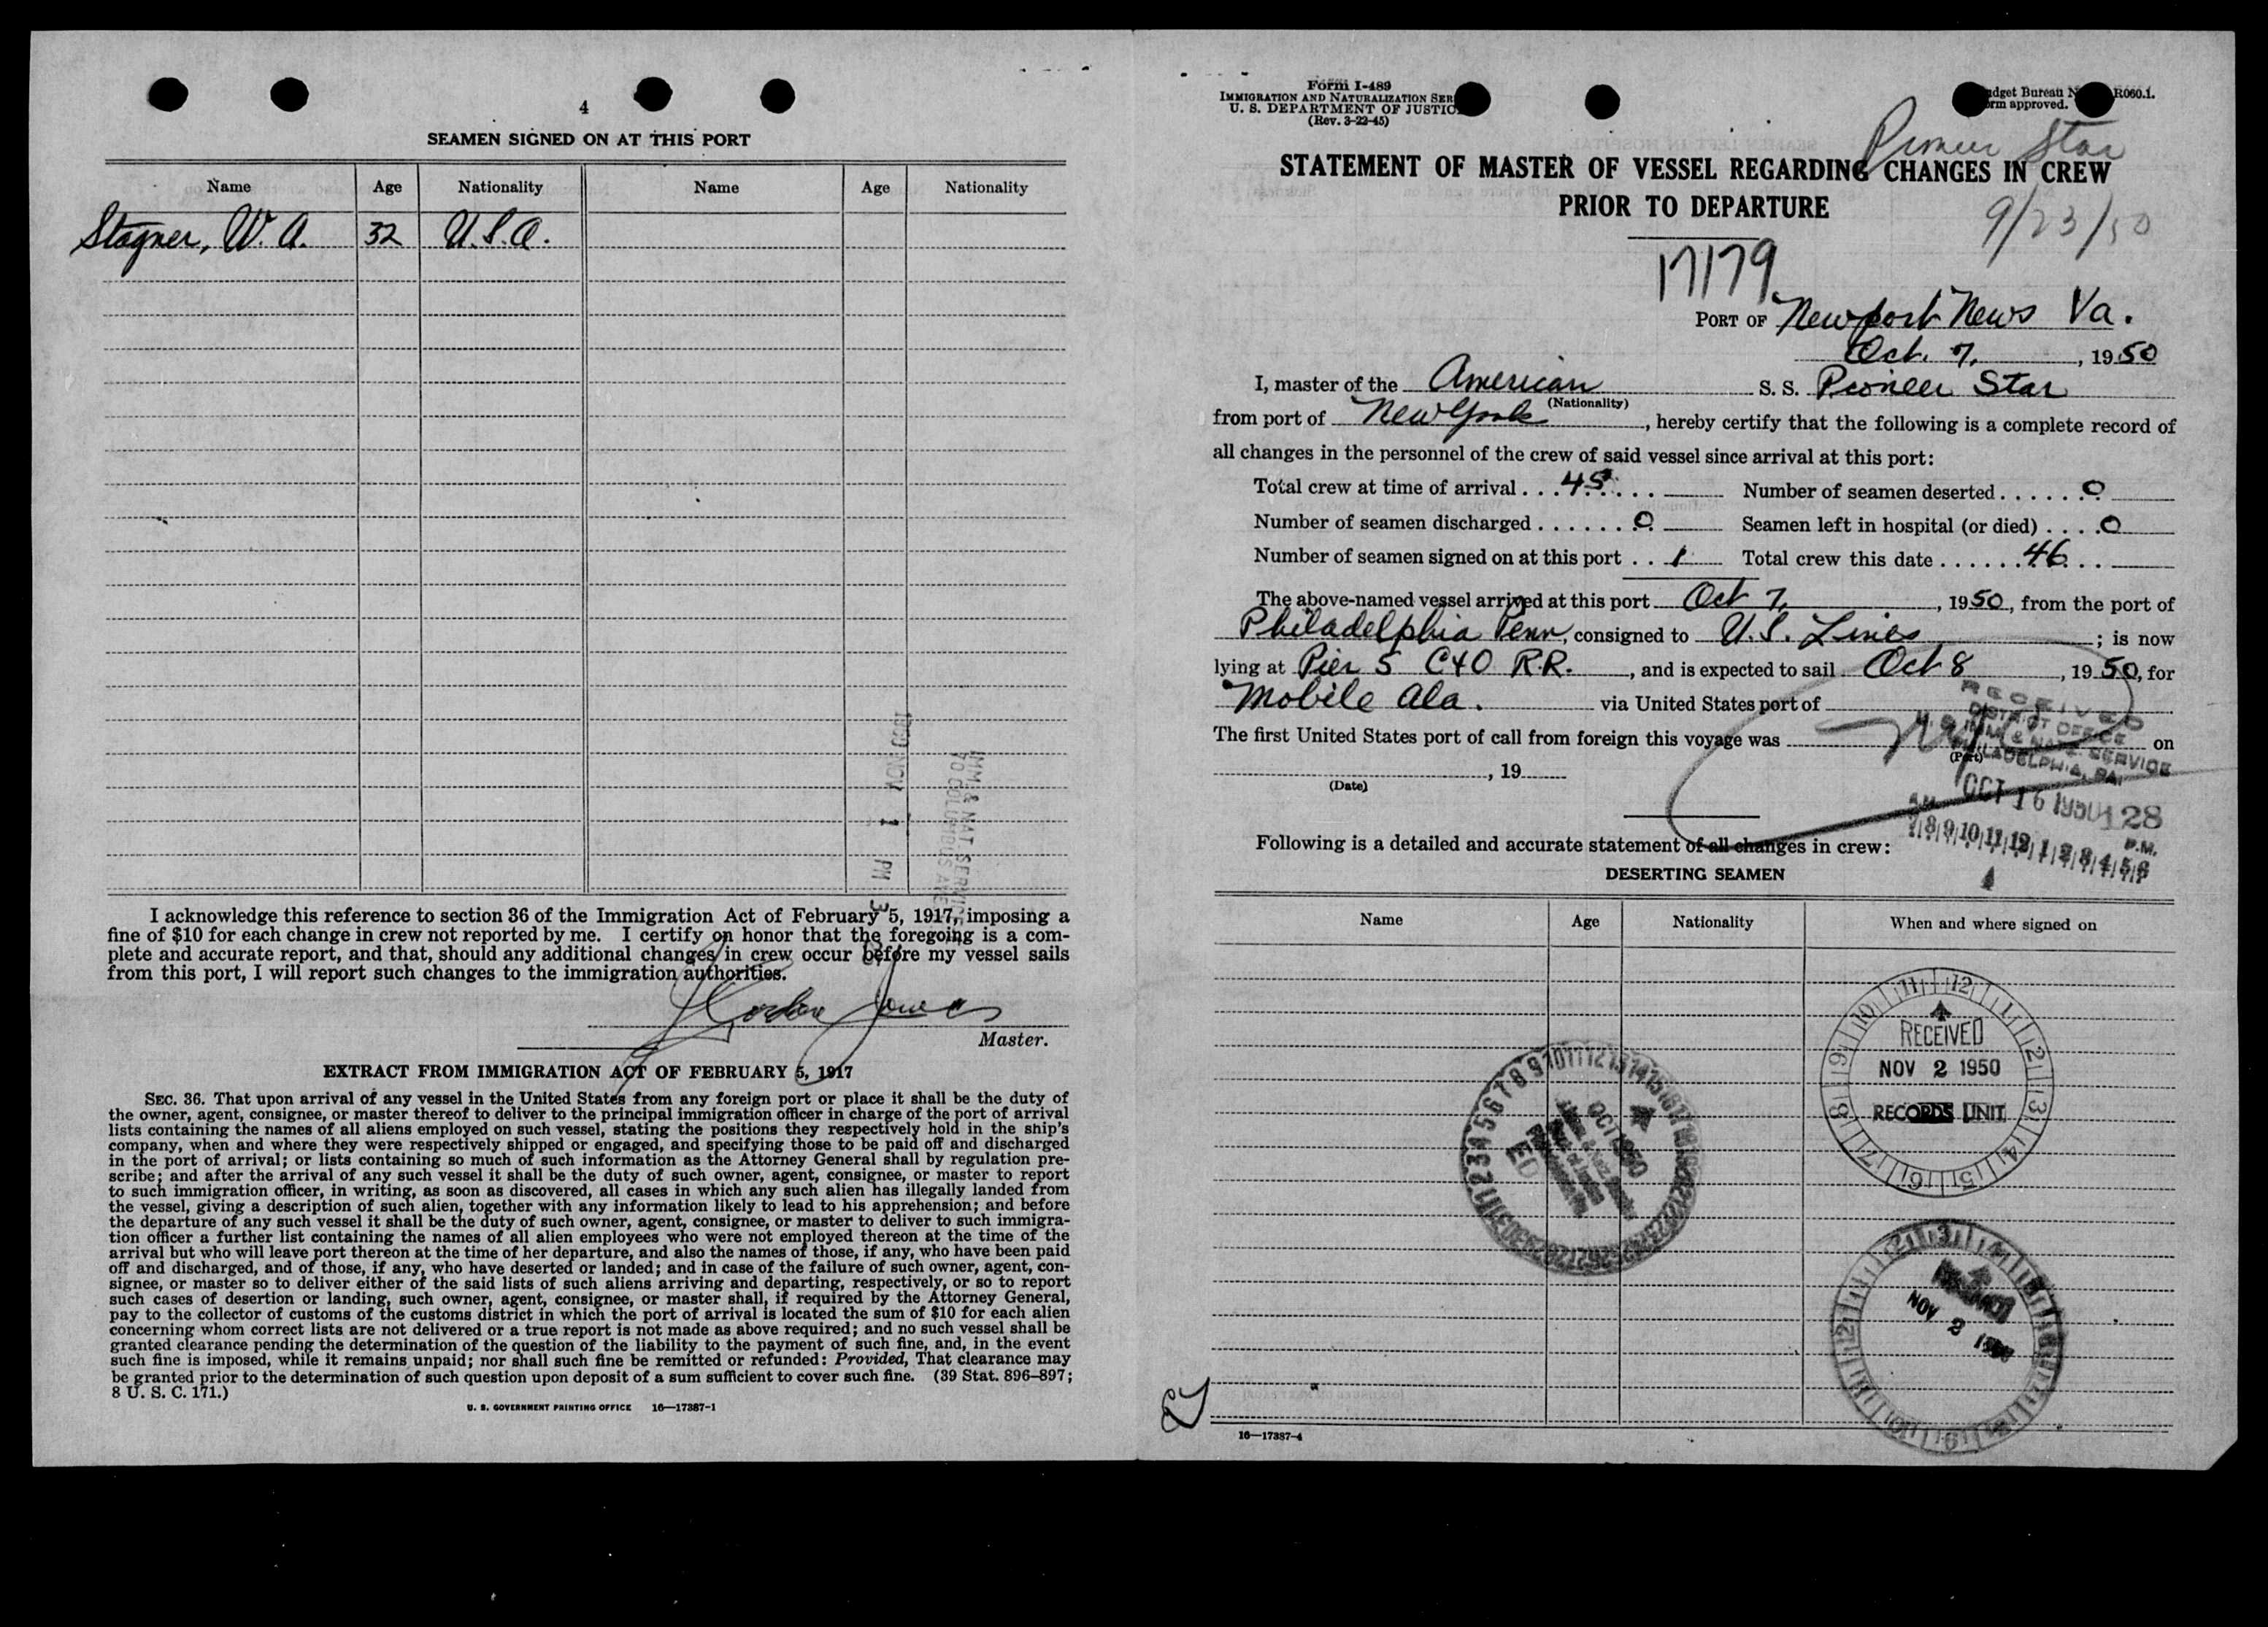 4
SEAMEN SIGNED ON AT THIS PORT
Name Age Nationality Name Age Nationality
Stagner, W. A. 32 U.S.A.
1950 NOV 1 PM 3
IMM & NAT SERVICE
I acknowledge this reference to section 36 of the Immigration Act of February 5, 1917, imposing a
fine of $10 for each change in crew not reported by me. I certify on honor that the foregoing is a com-
plete and accurate report, and that, should any additional changes in crew occur before my vessel sails
from this port, I will report such changes to the immigration authorities.
Jones
Master.
EXTRACT FROM IMMIGRATION ACT OF FEBRUARY 5, 1917
SEC. 36. That upon arrival of any vessel in the United States from any foreign port or place it shall be the duty of
the owner, agent, consignee, or master thereof to deliver to the principal immigration officer in charge of the port of arrival
lists containing the names of all aliens employed on such vessel, stating the positions they respectively hold in the ship's
company, when and where they were respectively shipped or engaged, and specifying those to be paid off and discharged
in the port of arrival; or lists containing so much of such information as the Attorney General shall by regulation pre-
scribe; and after the arrival of any such vessel it shall be the duty of such owner, agent, consignee, or master to report
to such immigration officer, in writing, as soon as discovered, all cases in which any such alien has illegally landed from
the vessel, giving a description of such alien, together with any information likely to lead to his apprehension; and before
the departure of any such vessel it shall be the duty of such owner, agent, consignee, or master to deliver to such immigra-
tion officer a further list containing the names of all alien employees who were not employed thereon at the time of the
arrival but who will leave port thereon at the time of her departure, and also the names of those, if any, who have been paid
off and discharged, and of those, if any, who have deserted or landed; and in case of the failure of such owner, agent, con-
signee, or master so to deliver either of the said lists of such aliens arriving and departing, respectively, or so to report
such cases of desertion or landing, such owner, agent, consignee, or master shall, if required by the Attorney General,
pay to the collector of customs of the customs district in which the port of arrival is located the sum of $10 for each alien
concerning whom correct lists are not delivered or a true report is not made as above required; and no such vessel shall be
granted clearance pending the determination of the question of the liability to the payment of such fine, and, in the event
such fine is imposed, while it remains unpaid; nor shall such fine be remitted or refunded: Provided, That clearance may
be granted prior to the determination of such question upon deposit of a sum sufficient to cover such fine. (39 Stat. 896–897;
8 U. S. C. 171.)
U. S. GOVERNMENT PRINTING OFFICE 16—17387-1
Form I-489
IMMIGRATION AND NATURALIZATION SER
U. S. DEPARTMENT OF JUSTIC
(Rev. 3-22-45)
dget Bureau N R060.1.
rm approved.
Pioneer Star
STATEMENT OF MASTER OF VESSEL REGARDING CHANGES IN CREW
PRIOR TO DEPARTURE
9/23/50
17179
PORT OF Newport News Va.
Oct. 7, 1950
I, master of the American S. S. Pioneer Star
(Nationality)
from port of New York, hereby certify that the following is a complete record of
all changes in the personnel of the crew of said vessel since arrival at this port:
Total crew at time of arrival . . . 45 . . . Number of seamen deserted . . . . . . 0
Number of seamen discharged . . . . . . 0 Seamen left in hospital (or died) . . . . 0
Number of seamen signed on at this port . . 1 Total crew this date . . . . . . 46 . . .
The above-named vessel arrived at this port Oct 7, 1950, from the port of
Philadelphia Penn, consigned to U.S. Lines; is now
lying at Pier 5 C&O R.R., and is expected to sail Oct 8, 1950, for
Mobile Ala. via United States port of
The first United States port of call from foreign this voyage was on
(Port)
, 19
(Date)
RECEIVED
DISTRICT OFFICE
U. S. IMM. & NATZ. SERVICE
PHILADELPHIA, PA.
OCT 16 1950 1 28
A.M. P.M.
7|8|9|10|11|12|1|2|3|4|5|6
Following is a detailed and accurate statement of all changes in crew:
DESERTING SEAMEN
Name Age Nationality When and where signed on
RECEIVED
NOV 2 1950
RECORDS UNIT
OCT 1950
NOV 2 1950
16—17387-4